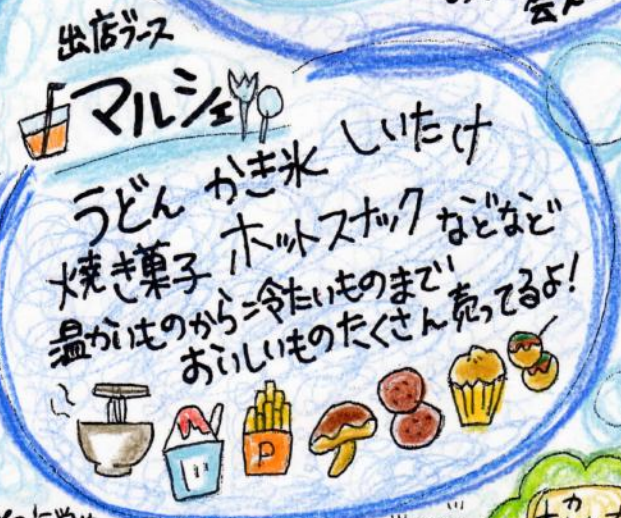 出店ブース
マルシェ
うどん かき氷 しいたけ
焼き菓子 ホットスナック などなど
温かいものから冷たいものまで
おいしいものたくさん売ってるよ!
P